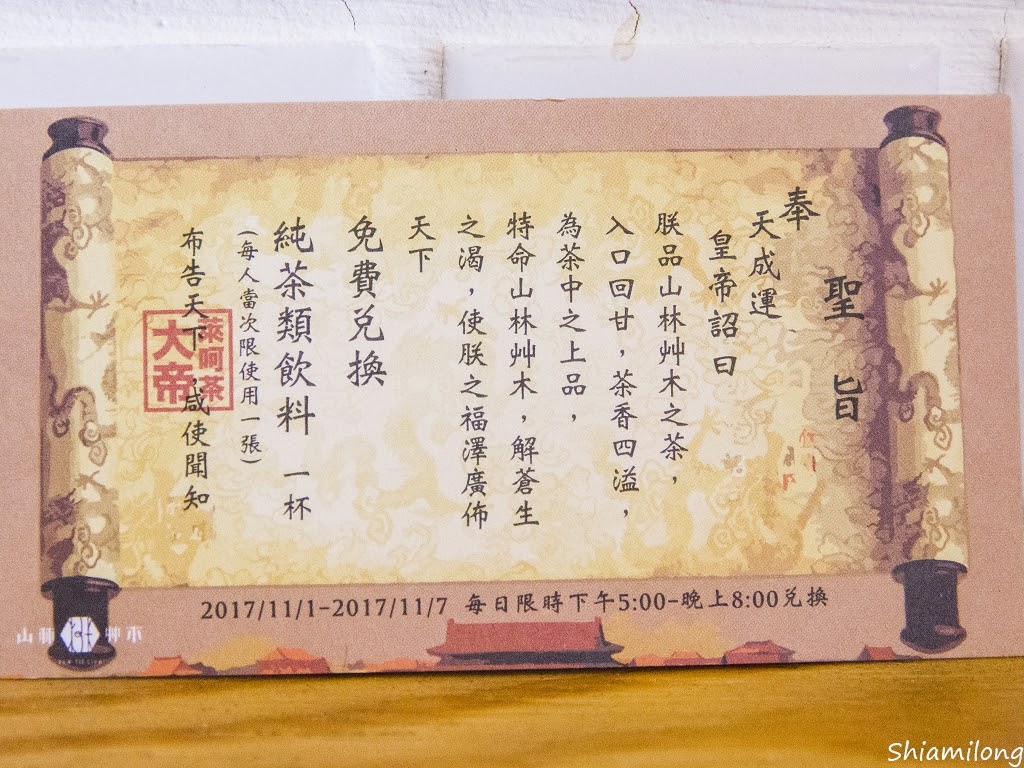 聖旨
奉
天成運
皇帝詔曰
朕品山林艸木之茶，
入口回甘，茶香四溢，
為茶中之上品，
特命山林艸木，解蒼生
之渴，使朕之福澤廣佈
天下
免費兌換
純茶類飲料 一杯
(每人當次限使用一張)
布告天下，咸使聞知
萊呵茶
大帝
2017/11/1-2017/11/7 每日限時下午5:00-晚上8:00兌換
山林艸木
Shiamilong